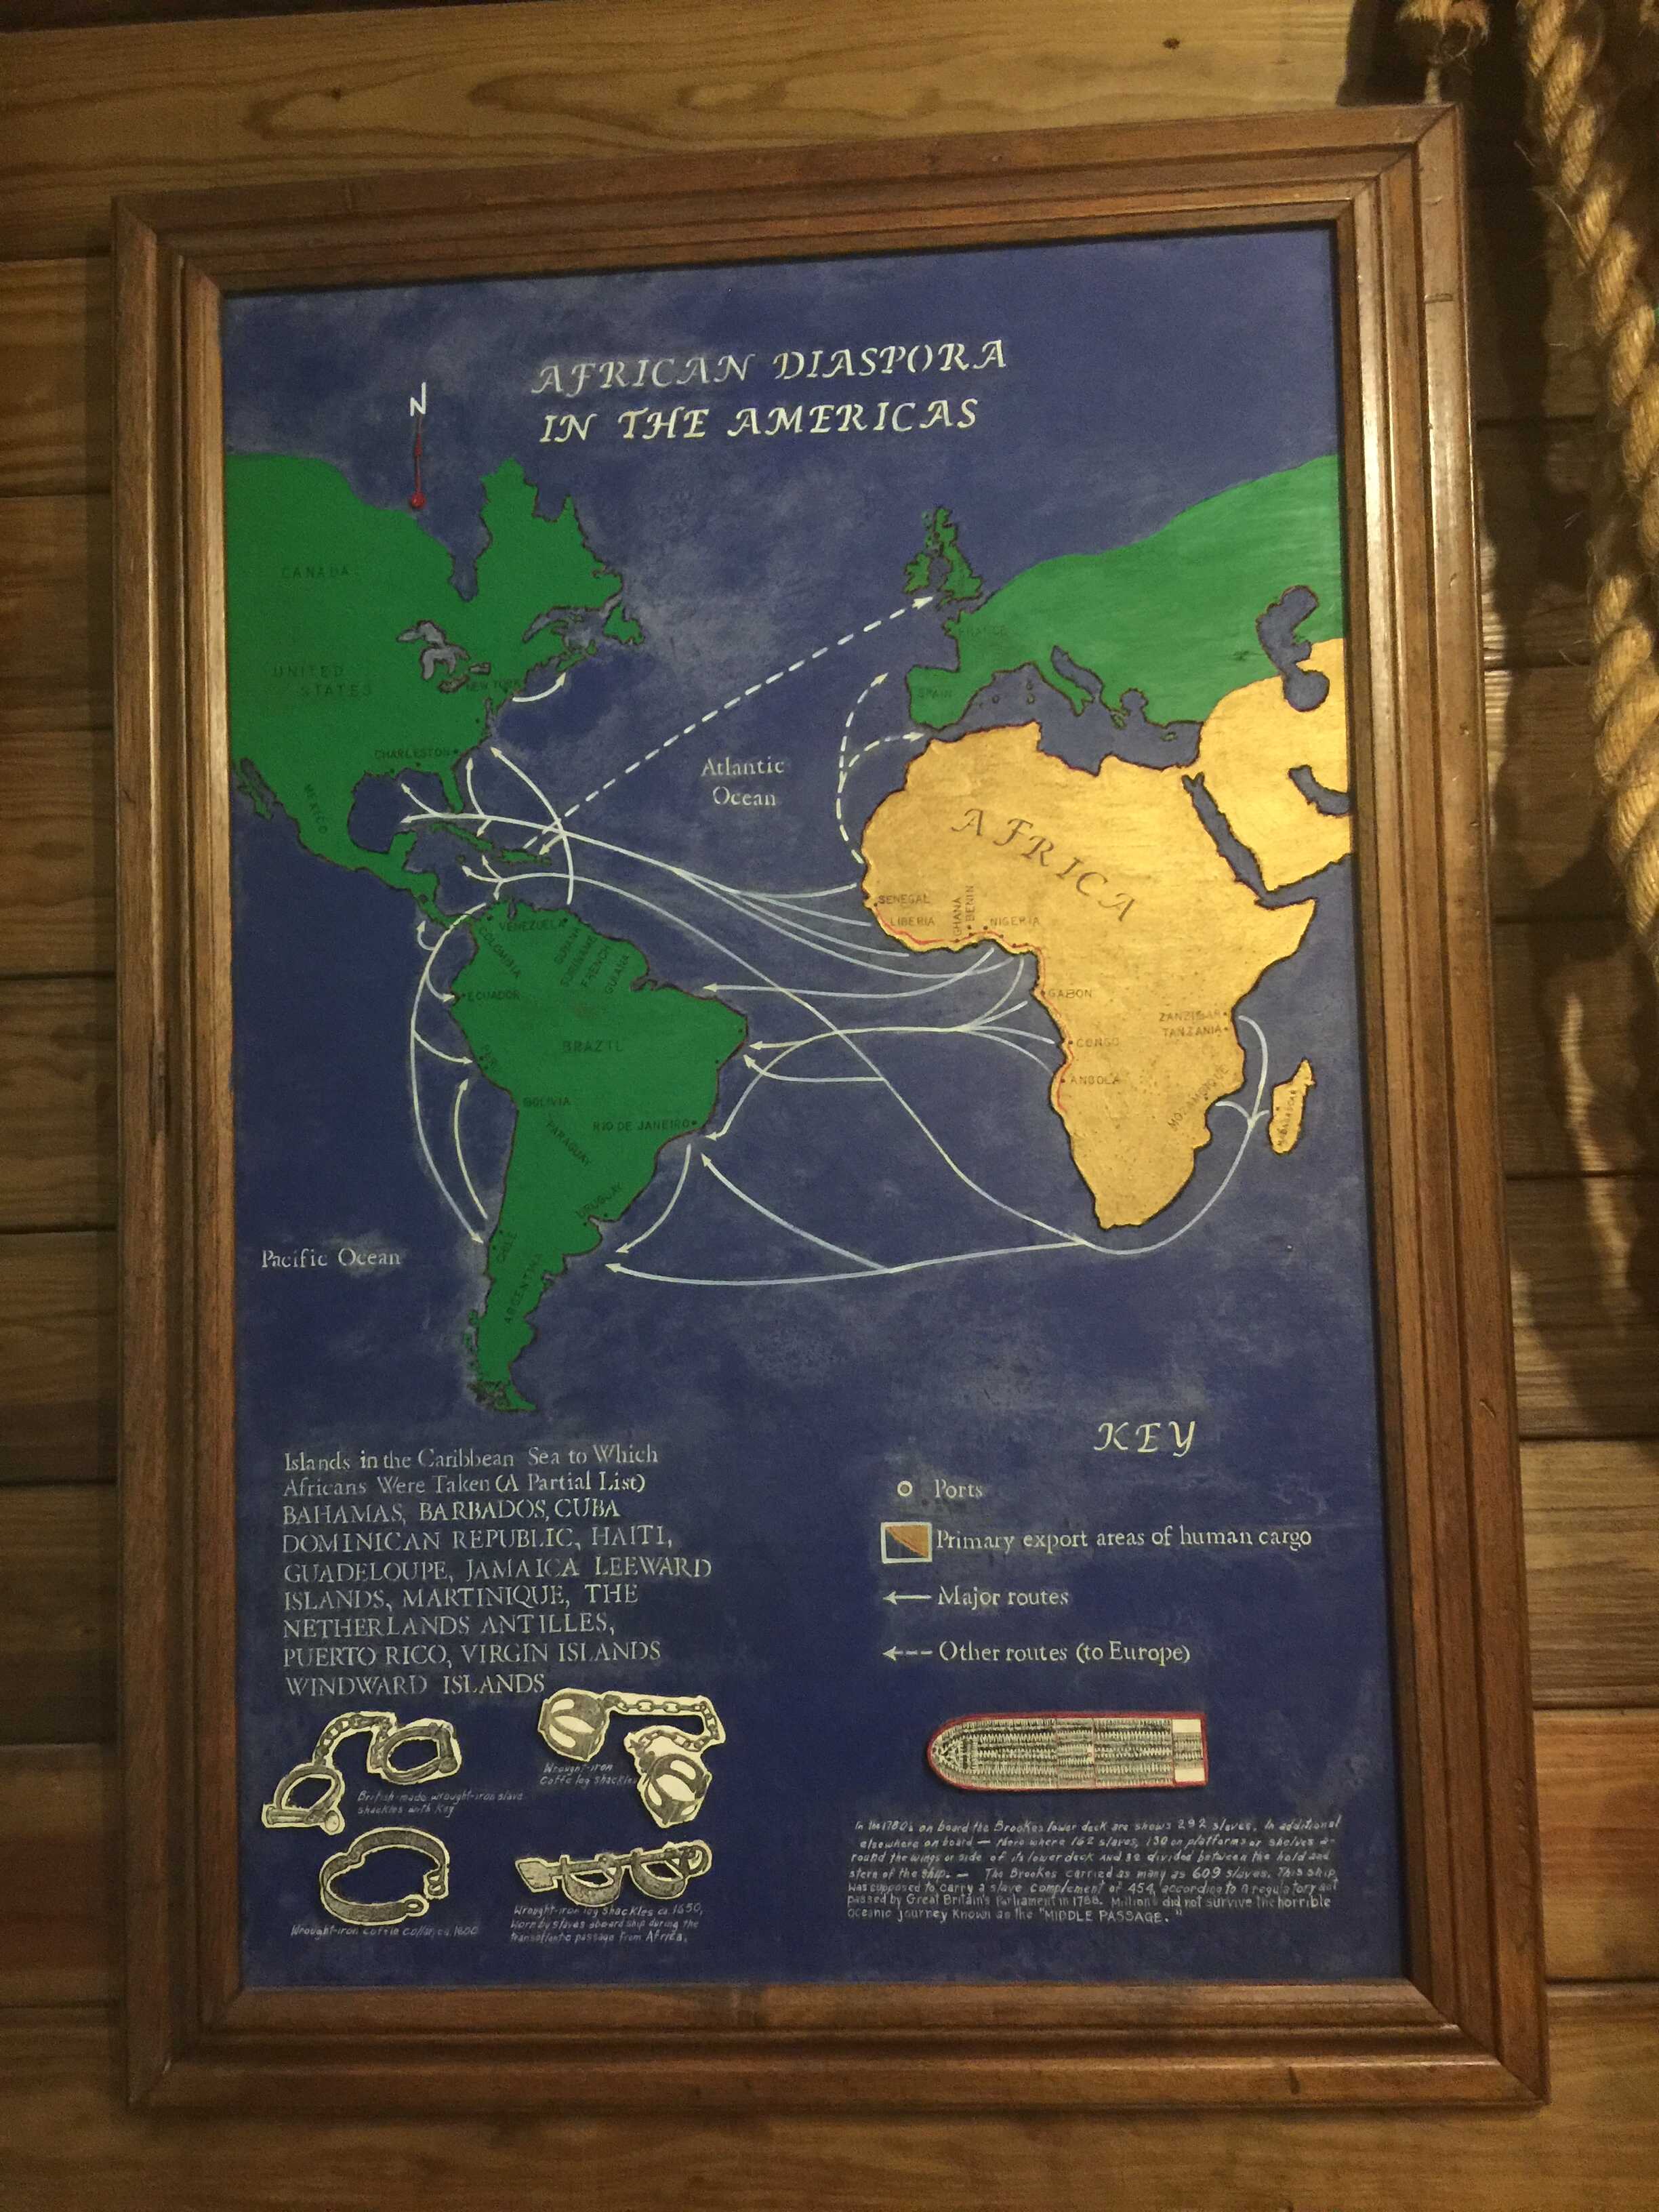 AFRICAN DIASPORA
IN THE AMERICAS
N
CANADA
UNITED
STATES
NEW YORK
CHARLESTON
MEXICO
FRANCE
SPAIN
Atlantic
Ocean
AFRICA
SENEGAL
LIBERIA
GHANA
BENIN
NIGERIA
GABON
CONGO
ANGOLA
ZANZIBAR
TANZANIA
MOZAMBIQUE
MADAGASCAR
VENEZUELA
COLOMBIA
GUYANA
SURINAME
FRENCH
GUIANA
ECUADOR
PERU
BRAZIL
BOLIVIA
RIO DE JANEIRO
PARAGUAY
URUGUAY
CHILE
ARGENTINA
Pacific Ocean
Islands in the Caribbean Sea to Which
Africans Were Taken (A Partial List)
BAHAMAS, BARBADOS, CUBA
DOMINICAN REPUBLIC, HAITI,
GUADELOUPE, JAMAICA LEEWARD
ISLANDS, MARTINIQUE, THE
NETHERLANDS ANTILLES,
PUERTO RICO, VIRGIN ISLANDS
WINDWARD ISLANDS
KEY
Ports
Primary export areas of human cargo
Major routes
Other routes (to Europe)
British-made wrought-iron slave
shackles with Key
Wrought-iron
leg shackles
Wrought-iron collar, ca. 1600
Wrought-iron leg shackles ca. 1650,
Worn by slaves aboard ship during the
transatlantic passage from Africa.
In the 1780s on board the Brookes lower deck are shows 292 slaves. In additional
elsewhere on board — there where 162 slaves, 130 on platforms or shelves a-
round the wings or side of its lower deck and 32 divided between the hold and
stern of the ship. — The Brookes carried as many as 609 slaves. This ship
was supposed to carry a slave complement of 454, according to a regulatory act
passed by Great Britain's Parliament in 1788. Millions did not survive the horrible
oceanic journey known as the "MIDDLE PASSAGE."